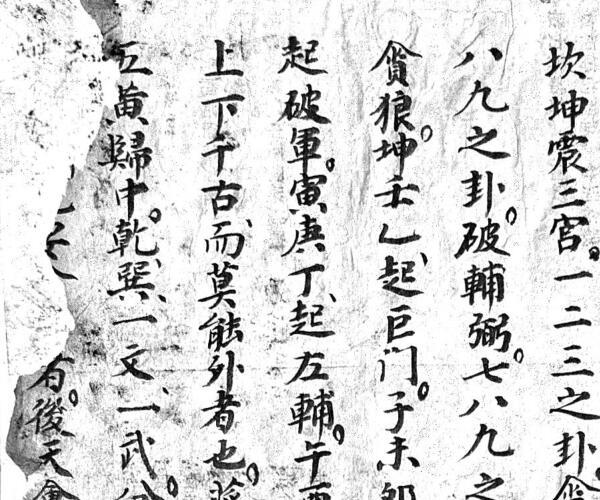 坎坤震三宮。一二三之卦。
八九之卦。破輔弼。七八九之
貪狼。坤壬乙、起巨门。子未
起破軍。寅庚丁、起左輔。午酉
上下千古、而莫能外者也。
五黄歸中。乾、巽、一文、一武
有。後天